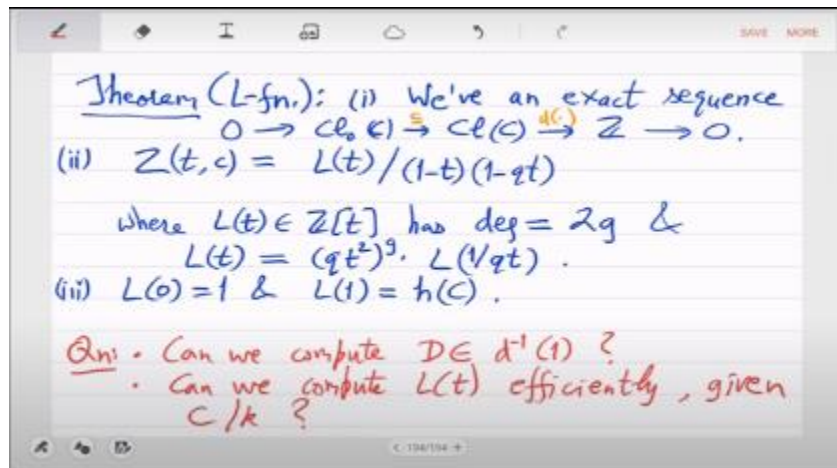 SAVE MORE
Theorem (L-fn.): (i) We've an exact sequence
0 → Cl₀(C) →^⊆ Cl(C) →^d(·) Z → 0.
(ii) Z(t,C) = L(t)/(1-t)(1-qt)
where L(t) ∈ Z[t] has deg = 2g &
L(t) = (qt²)^g · L(1/qt).
(iii) L(0)=1 & L(1) = h(C).
Qn: • Can we compute D ∈ d⁻¹(1) ?
• Can we compute L(t) efficiently, given
C/k ?
< 194/194 +